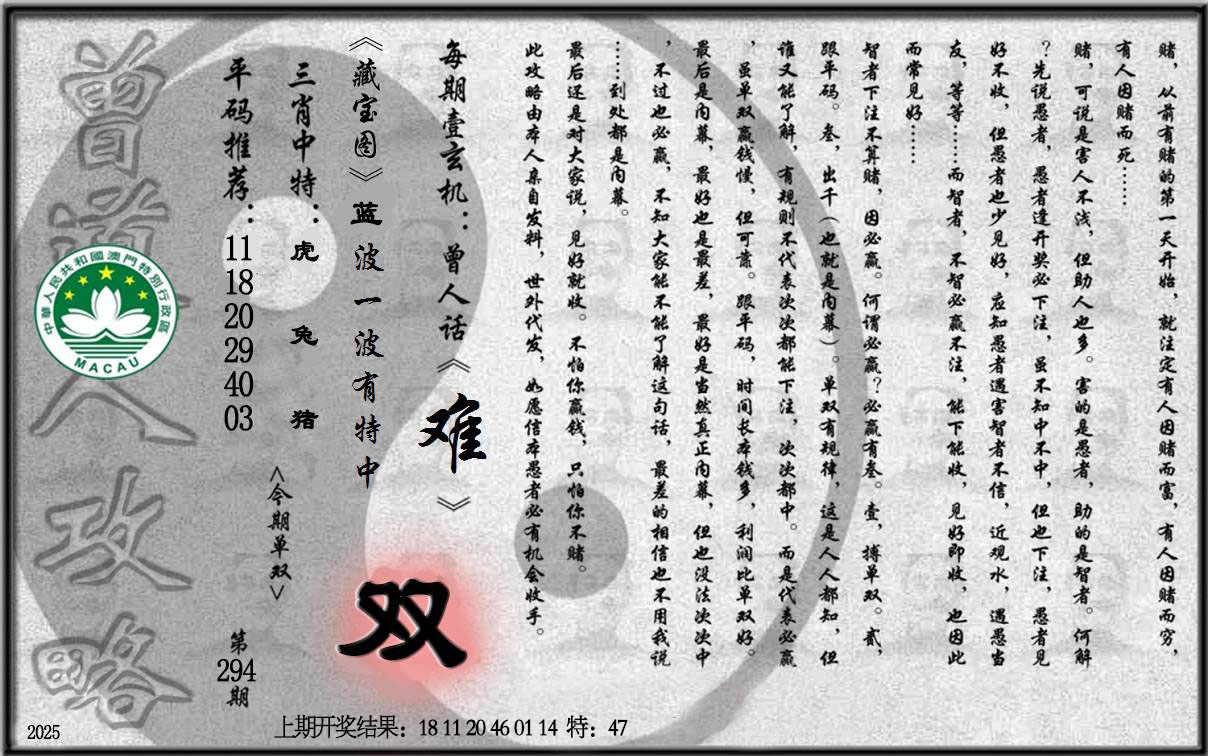 赌，从前有赌的第一天开始，就注定有人因赌而富，有人因赌而穷，
有人因赌而死……
赌，可说是害人不浅，但助人也多。害的是愚者，助的是智者。何解
？先说愚者，愚者逢开奖必下注，虽不知中不中，但也下注，愚者见
好不收，但愚者也少见好，应知愚者遇害智者不信，近观水，遇愚当
友，等等……而智者，不智必赢不注，能下能收，见好即收，也因此
而常见好……
智者下注不算赌，因必赢。何谓必赢？必赢有叁。壹，搏单双。贰，
跟平码。叁，出千（也就是内幕）。单双有规律，这是人人都知，但
谁又能了解，有规则不代表次次都能下注，次次都中。而是代表必赢
，虽单双赢钱慢，但可靠。跟平码，时间长本钱多，利润比单双好。
最后是内幕，最好也是最差，最好是当然真正内幕，但也没法次次中
，不过也必赢，不知大家能不能了解这句话，最差的相信也不用我说
……到处都是内幕。
最后还是对大家说，见好就收。不怕你赢钱，只怕你不赌。
此攻略由本人亲自发料，世外代发，如愿信本愚者必有机会收手。
每期壹玄机：曾人话《难》
《藏宝图》蓝波一波有特中
双
三肖中特：虎 兔 猪
<今期单双>
平码推荐：11 18 20 29 40 03
第294期
曾道人攻略
中華人民共和國澳門特別行政區
MACAU
2025
上期开奖结果：18 11 20 46 01 14 特：47